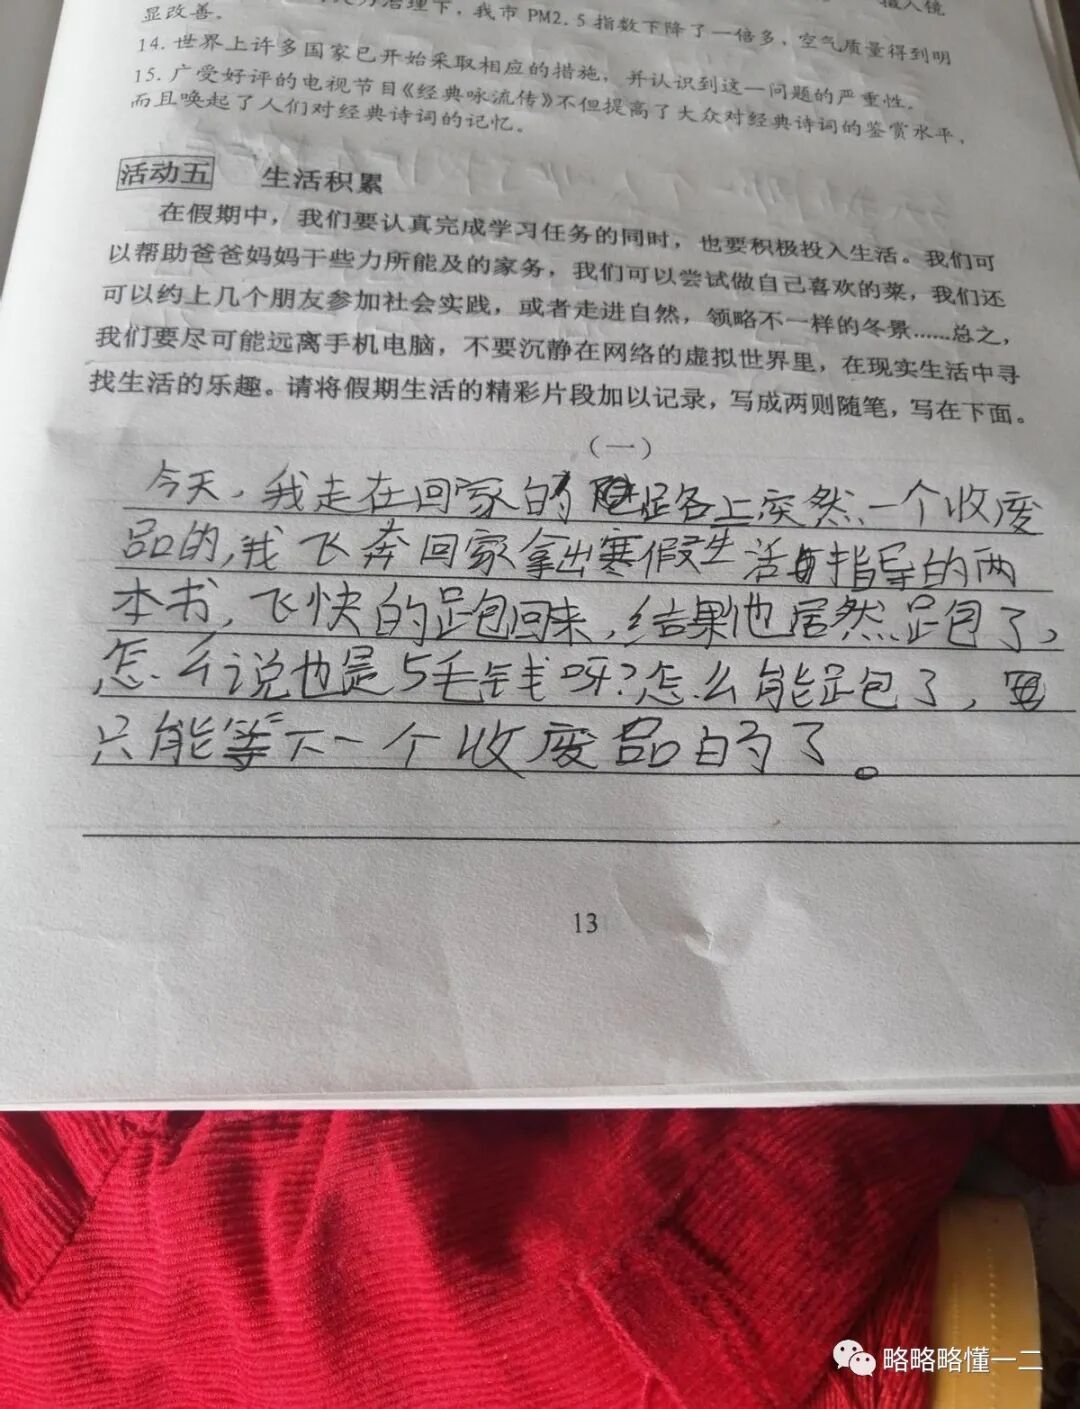 力治理下，我市PM2.5指数下降了一倍多，空气质量得到明
显改善。
14.世界上许多国家已开始采取相应的措施，并认识到这一问题的严重性。
15.广受好评的电视节目《经典咏流传》不但提高了大众对经典诗词的鉴赏水平，
而且唤起了人们对经典诗词的记忆。
活动五 生活积累
在假期中，我们要认真完成学习任务的同时，也要积极投入生活。我们可
以帮助爸爸妈妈干些力所能及的家务，我们可以尝试做自己喜欢的菜，我们还
可以约上几个朋友参加社会实践，或者走进自然，领略不一样的冬景……总之，
我们要尽可能远离手机电脑，不要沉静在网络的虚拟世界里，在现实生活中寻
找生活的乐趣。请将假期生活的精彩片段加以记录，写成两则随笔，写在下面。
（一）
今天，我走在回家的路上突然、一个收废
品的，我飞奔回家拿出寒假生活指导的两
本书，飞快的跑回来，结果他居然跑了，
怎么说也是5毛钱呀？怎么能跑了，
只能等下一个收废品的了。
13
略略略懂一二